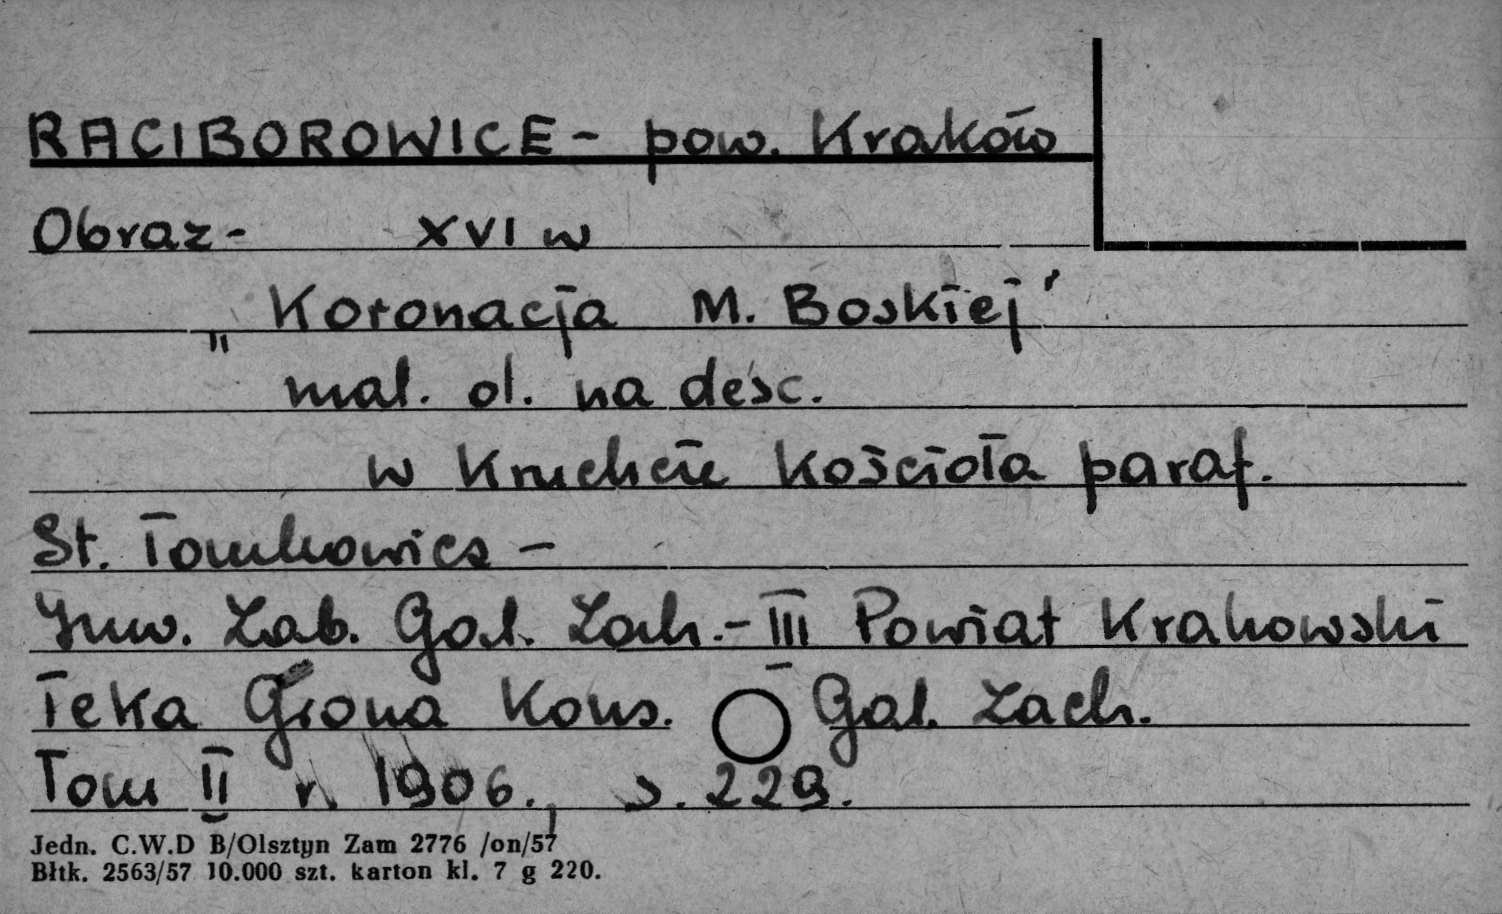 RACIBOROWICE - pow. Kraków
Obraz - XVI w
„Koronacja M. Boskiej"
mal. ol. na desc.
w Kruchcie Kościoła paraf.
St. Tomkowicz -
Inw. Zab. Gal. Zach. - III Powiat Krakowski
Teka Grona Kons. Gal. Zach.
Tom II r. 1906., s. 229.
Jedn. C.W.D B/Olsztyn Zam 2776 /on/57
Błtk. 2563/57 10.000 szt. karton kl. 7 g 220.